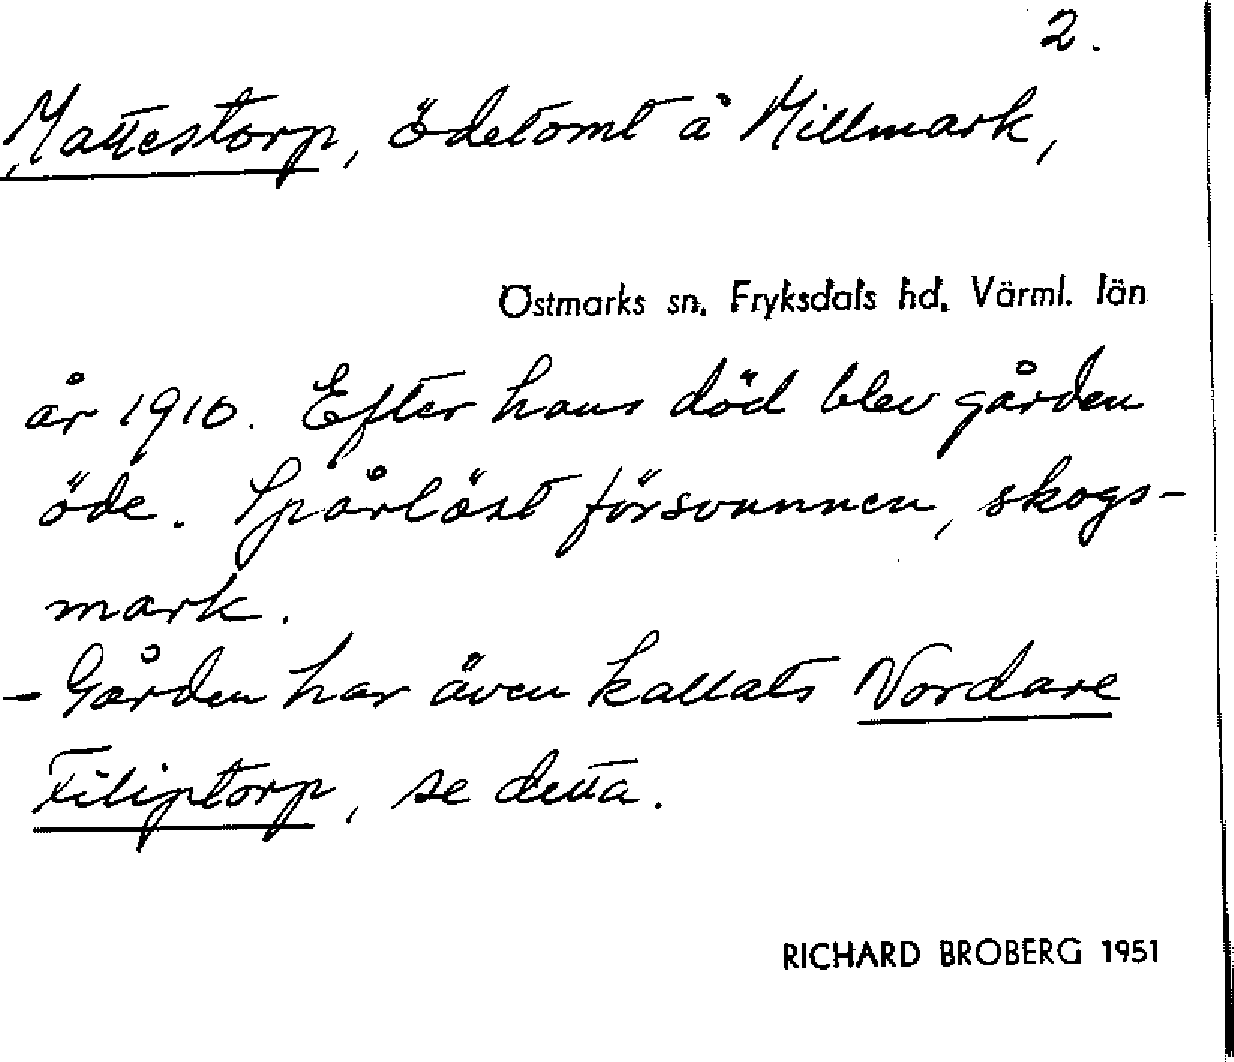 2.
Mattestorp, ödetomt å Millmark,
Östmarks sn. Fryksdals hd. Värml. län
år 1910. Efter hans död blev gården
öde. Spårlöst försvunnen, skogs-
mark.
- Gården har även kallats Nordare
Filiptorp, se detta.
RICHARD BROBERG 1951